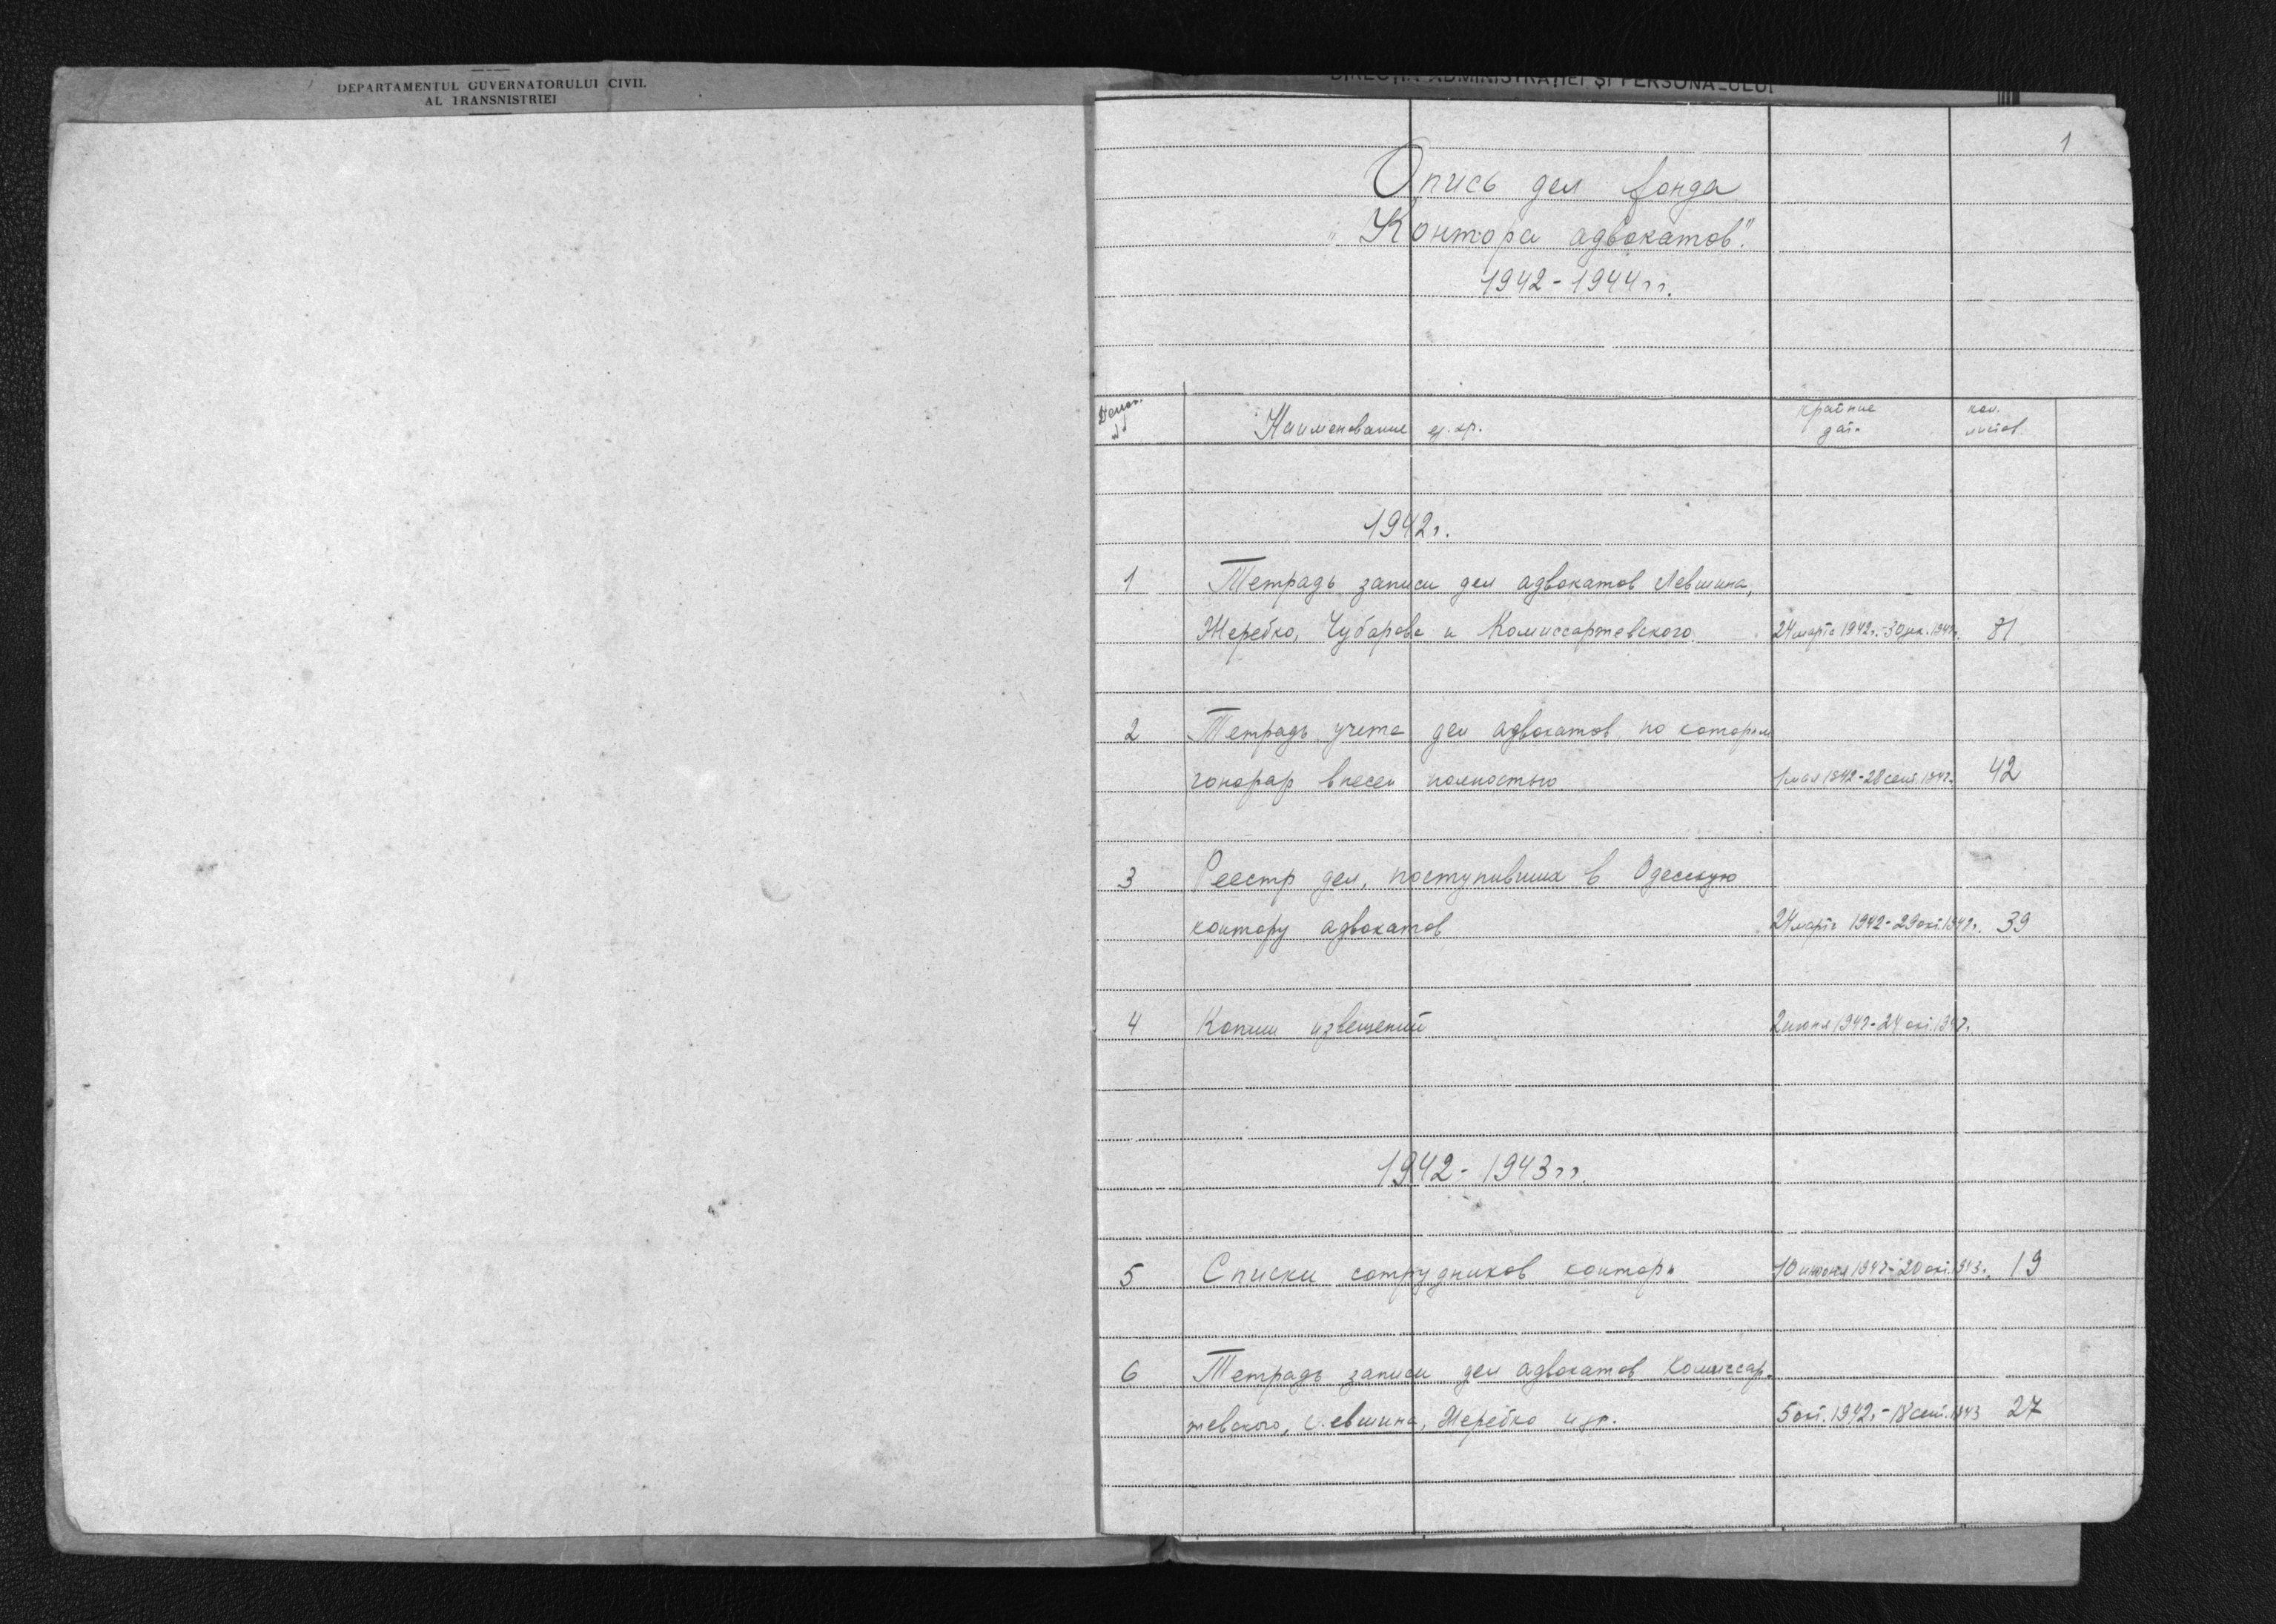 DEPARTAMENTUL GUVERNATORULUI CIVIL
AL TRANSNISTRIEI
DIRECȚIA ADMINISTRAȚIEI ȘI PERSONALULUI
1
Опись дел фонда
"Контора адвокатов".
1942-1944 гг.
Наименование ед. хр.
крайние
даты
кол.
листов
1942 г.
1 Тетрадь записи дел адвокатов Левшина,
Жеребко, Чубарова и Комиссаржевского. 24 марта 1942 г.-30 дек. 1942 г. 81
2 Тетрадь учета дел адвокатов по которым
гонорар внесен полностью. 1 мая 1942-28 сент. 1942 г. 42
3 Реестр дел, поступивших в Одесскую
контору адвокатов 24 марта 1942-29 окт. 1942 г. 39
4 Копии извещений 2 июня 1942-24 окт. 1942 г.
1942-1943 гг.
5 Списки сотрудников конторы 10 1942-20 окт. 1943 г. 19
6 Тетрадь записи дел адвокатов Комиссар-
жевского, Левшина, Жеребко и др. 5 окт. 1942 г.-18 сент. 1943 27